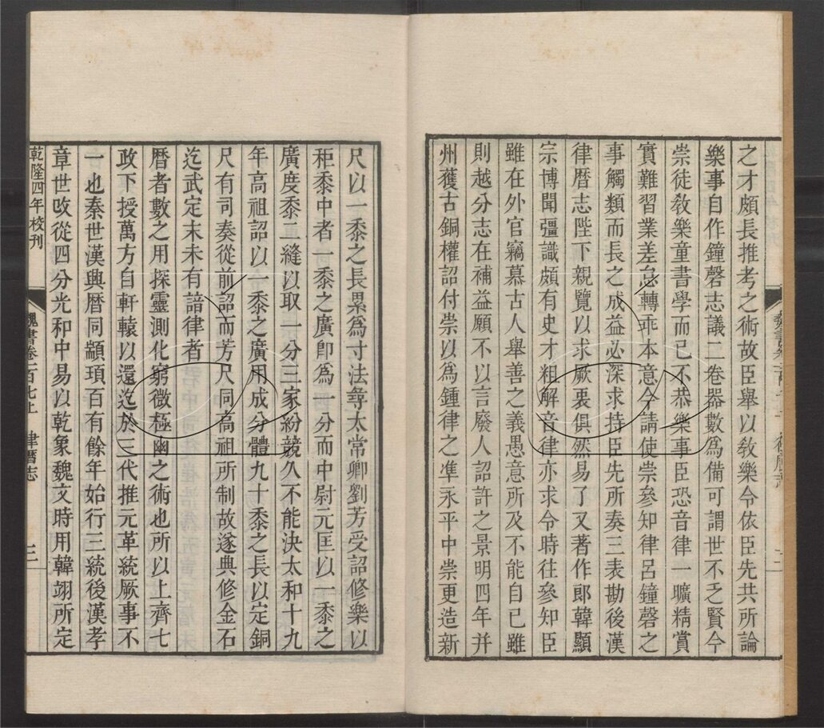 之才頗長推考之術故臣舉以敎樂令依臣先共所論
樂事自作鐘磬志議二卷器數爲備可謂世不乏賢今
崇徒敎樂童書學而已不恭樂事臣恐音律一曠精賞
實難習業差怠轉乖本意今請使崇參知律呂鐘磬之
事觸類而長之成益必深求持臣先所奏三表勘後漢
律曆志陛下親覽以求厥衷俱然易了又著作郎韓顯
宗博聞彊識頗有史才粗解音律亦求令時往參知臣
雖在外官竊慕古人舉善之義愚意所及不能自已雖
則越分志在補益願不以言廢人詔許之景明四年并
州獲古銅權詔付崇以爲鍾律之準永平中崇更造新
尺以一黍之長累爲寸法尋太常卿劉芳受詔修樂以
秬黍中者一黍之廣卽爲一分而中尉元匡以一黍之
廣度黍二縫以取一分三家紛競久不能決太和十九
年高祖詔以一黍之廣用成分體九十黍之長以定銅
尺有司奏從前詔而芳尺同高祖所制故遂典修金石
迄武定末未有諳律者
曆者數之用探靈測化窮微極幽之術也所以上齊七
政下授萬方自軒轅以還迄於三代推元革統厥事不
一也秦世漢興曆同顓頊百有餘年始行三統後漢孝
章世改從四分光和中易以乾象魏文時用韓翊所定
乾隆四年校刊
魏書卷一百七上 律曆志 三